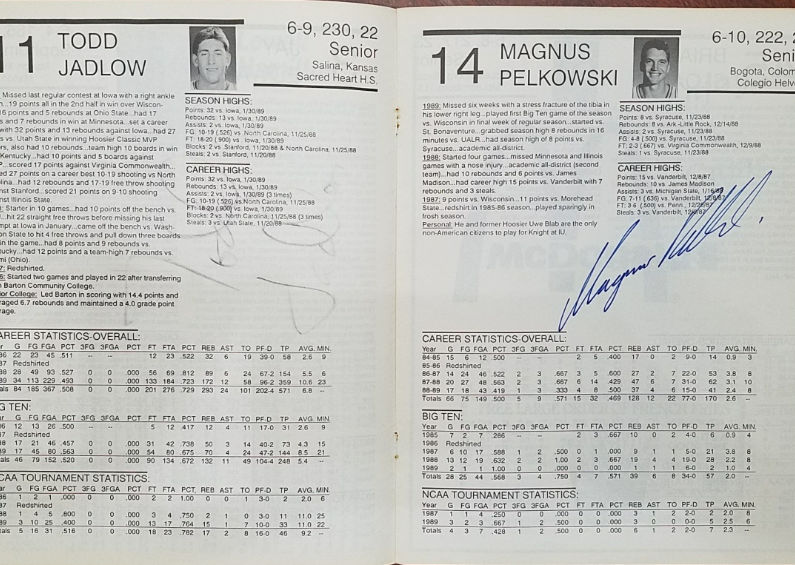 11
TODD
JADLOW
6-9, 230, 22
Senior
Salina, Kansas
Sacred Heart H.S.
Missed last regular contest at Iowa with a right ankle
...19 points all in the 2nd half in win over Wiscon-
16 points and 5 rebounds at Ohio State...had 17
and 7 rebounds in win at Minnesota...set a career
with 32 points and 13 rebounds against Iowa...had 27
vs. Utah State in winning Hoosier Classic MVP
also had 10 rebounds...team high 10 boards in win
Kentucky...had 10 points and 5 boards against
...scored 17 points against Virginia Commonwealth...
27 points on a career best 10-19 shooting vs North
...had 12 rebounds and 17-19 free throw shooting
Stanford...scored 21 points on 9-10 shooting
Illinois State.
Starter in 10 games...had 10 points off the bench vs.
hit 22 straight free throws before missing his last
at Iowa in January...came off the bench vs. Wash-
State to hit 4 free throws and pull down three boards
in the game...had 8 points and 9 rebounds vs.
...had 12 points and a team-high 7 rebounds vs.
(Ohio).
Redshirted.
Started two games and played in 22 after transferring
Barton Community College.
College: Led Barton in scoring with 14.4 points and
6.7 rebounds and maintained a 4.0 grade point
SEASON HIGHS:
Points: 32 vs. Iowa, 1/30/89
Rebounds: 13 vs. Iowa, 1/30/89
Assists: 2 vs. Iowa, 1/30/89
FG: 10-19 (.526) vs. North Carolina, 11/25/88
FT: 18-20 (.900) vs. Iowa, 1/30/89
Blocks: 2 vs. Stanford, 11/20/88 & North Carolina, 11/25/88
Steals: 2 vs. Stanford, 11/20/88
CAREER HIGHS:
Points: 32 vs. Iowa, 1/30/89
Rebounds: 13 vs. Iowa, 1/30/89
Assists: 2 vs. Iowa, 1/30/89 (3 times)
FG: 10-19 (.526) vs. North Carolina, 11/25/88
FT: 18-20 (.900) vs. Iowa, 1/30/89
Blocks: 2 vs. North Carolina, 11/25/88 (3 times)
Steals: 3 vs. Utah State, 11/20/88
CAREER STATISTICS-OVERALL:
G FG FGA PCT 3FG 3FGA PCT FT FTA PCT REB AST TO PF-D TP AVG. MIN.
22 23 45 .511 -- -- 12 23 .522 32 6 19 39-0 58 2.6 9
Redshirted
28 49 93 .527 0 0 .000 56 69 .812 89 6 24 67-2 154 5.5 6
34 113 229 .493 0 0 .000 133 184 .723 172 12 58 96-2 359 10.6 23
84 185 367 .508 0 0 .000 201 276 .729 293 24 101 202-4 571 6.8 --
BIG TEN:
G FG FGA PCT 3FG 3FGA PCT FT FTA PCT REB AST TO PF-D TP AVG. MIN.
12 13 26 .500 -- -- 5 12 .417 12 4 11 17-0 31 2.6 9
Redshirted
17 21 46 .457 0 0 .000 31 42 .738 50 3 14 40-2 73 4.3 15
17 45 80 .563 0 0 .000 54 80 .675 70 4 24 47-2 144 8.5 21
46 79 152 .520 0 0 .000 90 134 .672 132 11 49 104-4 248 5.4 --
NCAA TOURNAMENT STATISTICS:
G FG FGA PCT 3FG 3FGA PCT FT FTA PCT REB AST TO PF-D TP AVG. MIN.
1 2 1 .000 0 0 .000 2 2 1.00 0 0 1 3-0 2 2.0 6
Redshirted
1 4 5 .800 0 0 .000 3 4 .750 2 1 0 3-0 11 11.0 25
3 10 25 .400 0 0 .000 13 17 .764 15 1 7 10-0 33 11.0 22
5 16 31 .516 0 0 18 23 .782 17 2 8 16-0 46 9.2 --
14
MAGNUS
PELKOWSKI
6-10, 222, 2
Seni
Bogota, Colom
Colegio Helv
1989: Missed six weeks with a stress fracture of the tibia in
his lower right leg...played first Big Ten game of the season
vs. Wisconsin in final week of regular season...started vs.
St. Bonaventure...grabbed season high 8 rebounds in 16
minutes vs. UALR...had season high of 8 points vs.
Syracuse...academic all-district.
1988: Started four games...missed Minnesota and Illinois
games with a nose injury...academic all-district (second
team)...had 10 rebounds and 6 points vs. James
Madison...had career high 15 points vs. Vanderbilt with 7
rebounds and 3 steals.
1987: 9 points vs. Wisconsin...11 points vs. Morehead
State...redshirt in 1985-86 season...played sparingly in
frosh season.
Personal: He and former Hoosier Uwe Blab are the only
non-American citizens to play for Knight at IU.
SEASON HIGHS:
Points: 8 vs. Syracuse, 11/23/88
Rebounds: 8 vs. Ark-Little Rock, 12/14/88
Assists: 2 vs. Syracuse, 11/23/88
FG: 4-8 (.500) vs. Syracuse, 11/23/88
FT: 2-3 (.667) vs. Virginia Commonwealth, 12/9/88
Steals: 1 vs. Syracuse, 11/23/88
CAREER HIGHS:
Points: 15 vs. Vanderbilt, 12/8/87
Rebounds: 10 vs. James Madison
Assists: 3 vs. Michigan State,
FG: 7-11 (.636) vs. Vanderbilt, 12/8/87
FT: 3-6 (.500) vs. Penn.,
Steals: 3 vs. Vanderbilt, 12/8/87
Magnus Pelkowski
CAREER STATISTICS-OVERALL:
Year G FG FGA PCT 3FG 3FGA PCT FT FTA PCT REB AST TO PF-D TP AVG. MIN.
84-85 15 6 12 .500 -- -- 2 5 .400 17 0 2 9-0 14 0.9 3
85-86 Redshirted
86-87 14 24 46 .522 2 3 .667 3 5 .600 27 2 7 22-0 53 3.8 8
87-88 20 27 48 .563 2 3 .667 6 14 .429 47 6 7 31-0 62 3.1 10
88-89 17 18 43 .419 1 3 .333 4 8 .500 37 4 6 15-0 41 2.4 8
Totals 66 75 149 .500 5 9 .571 15 32 .469 128 12 22 77-0 170 2.6 --
BIG TEN:
Year G FG FGA PCT 3FG 3FGA PCT FT FTA PCT REB AST TO PF-D TP AVG. MIN.
1985 7 2 7 .286 -- -- 2 3 .667 10 0 2 4-0 6 0.9 4
1986 Redshirted
1987 6 10 17 .588 1 2 .500 0 1 .000 9 1 1 5-0 21 3.8 8
1988 13 12 19 .632 2 2 1.00 2 3 .667 19 4 4 19-0 28 2.2 8
1989 2 1 1 1.00 0 0 .000 0 0 .000 1 1 1 6-0 2 1.0 4
Totals 28 25 44 .568 3 4 .750 4 7 .571 39 6 8 34-0 57 2.0 --
NCAA TOURNAMENT STATISTICS:
Year G FG FGA PCT 3FG 3FGA PCT FT FTA PCT REB AST TO PF-D TP AVG. MIN.
1987 1 1 4 .250 0 0 .000 0 0 .000 3 1 2 2-0 2 2.0 8
1989 3 2 3 .667 1 2 .500 0 0 .000 3 0 0 0-0 5 2.5 6
Totals 4 3 7 .428 1 2 .500 0 0 .000 6 1 2 2-0 7 2.3 --